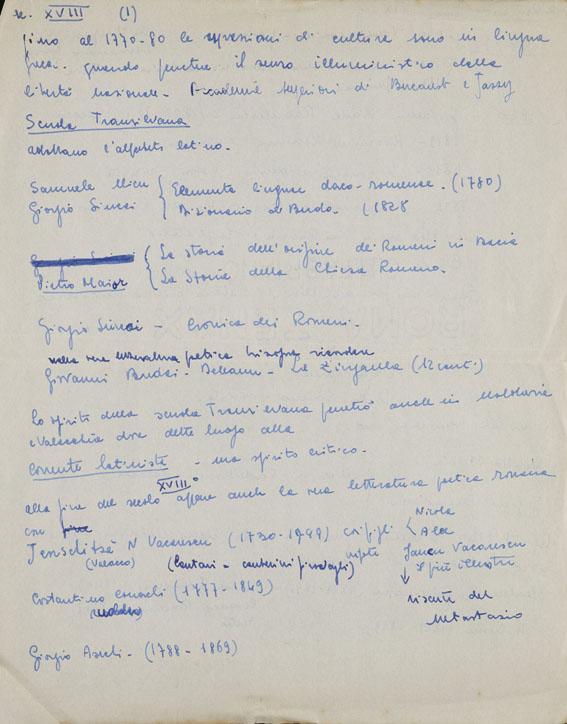 sc. XVIII (1)
fino al 1770-80 le espressioni di cultura sono in lingua
greca. quando penetra il senso illuministico della
libertà nazionale. Accademie superiori di Bucarest e Jassy
Scuola Transilvana
adottano l'alfabeto latino.
Samuele Micu { Elementa linguae daco-romanae. (1780)
Giorgio Sincai Dizionario di Buda. (1828
Pietro Maior { La storia dell'origine dei Romeni in Dacia
La Storia della Chiesa Romena.
Giorgio Sincai - Cronica dei Romeni.
nella vera letteratura poetica bisogna ricordare
Giovanni Budai-Deleanu - La Zingarella (12 cant.)
Lo spirito della scuola Transilvana penetrò anche in Moldavia
e Valacchia dove dette luogo alla
corrente latinista - ma spirito critico.
alla fine del secolo XVIII° appare anche la vera letteratura poetica romena
con
N Vacarescu (1730-1799) coi figli Nicola
Alec
(Valacco) (Cantari - canterini) nipote Jancu Vacarescu
il più illustre
Costantino Conachi (1777-1849)
moldavo
risente del
Metastasio
Giorgio Asachi - (1788-1869)